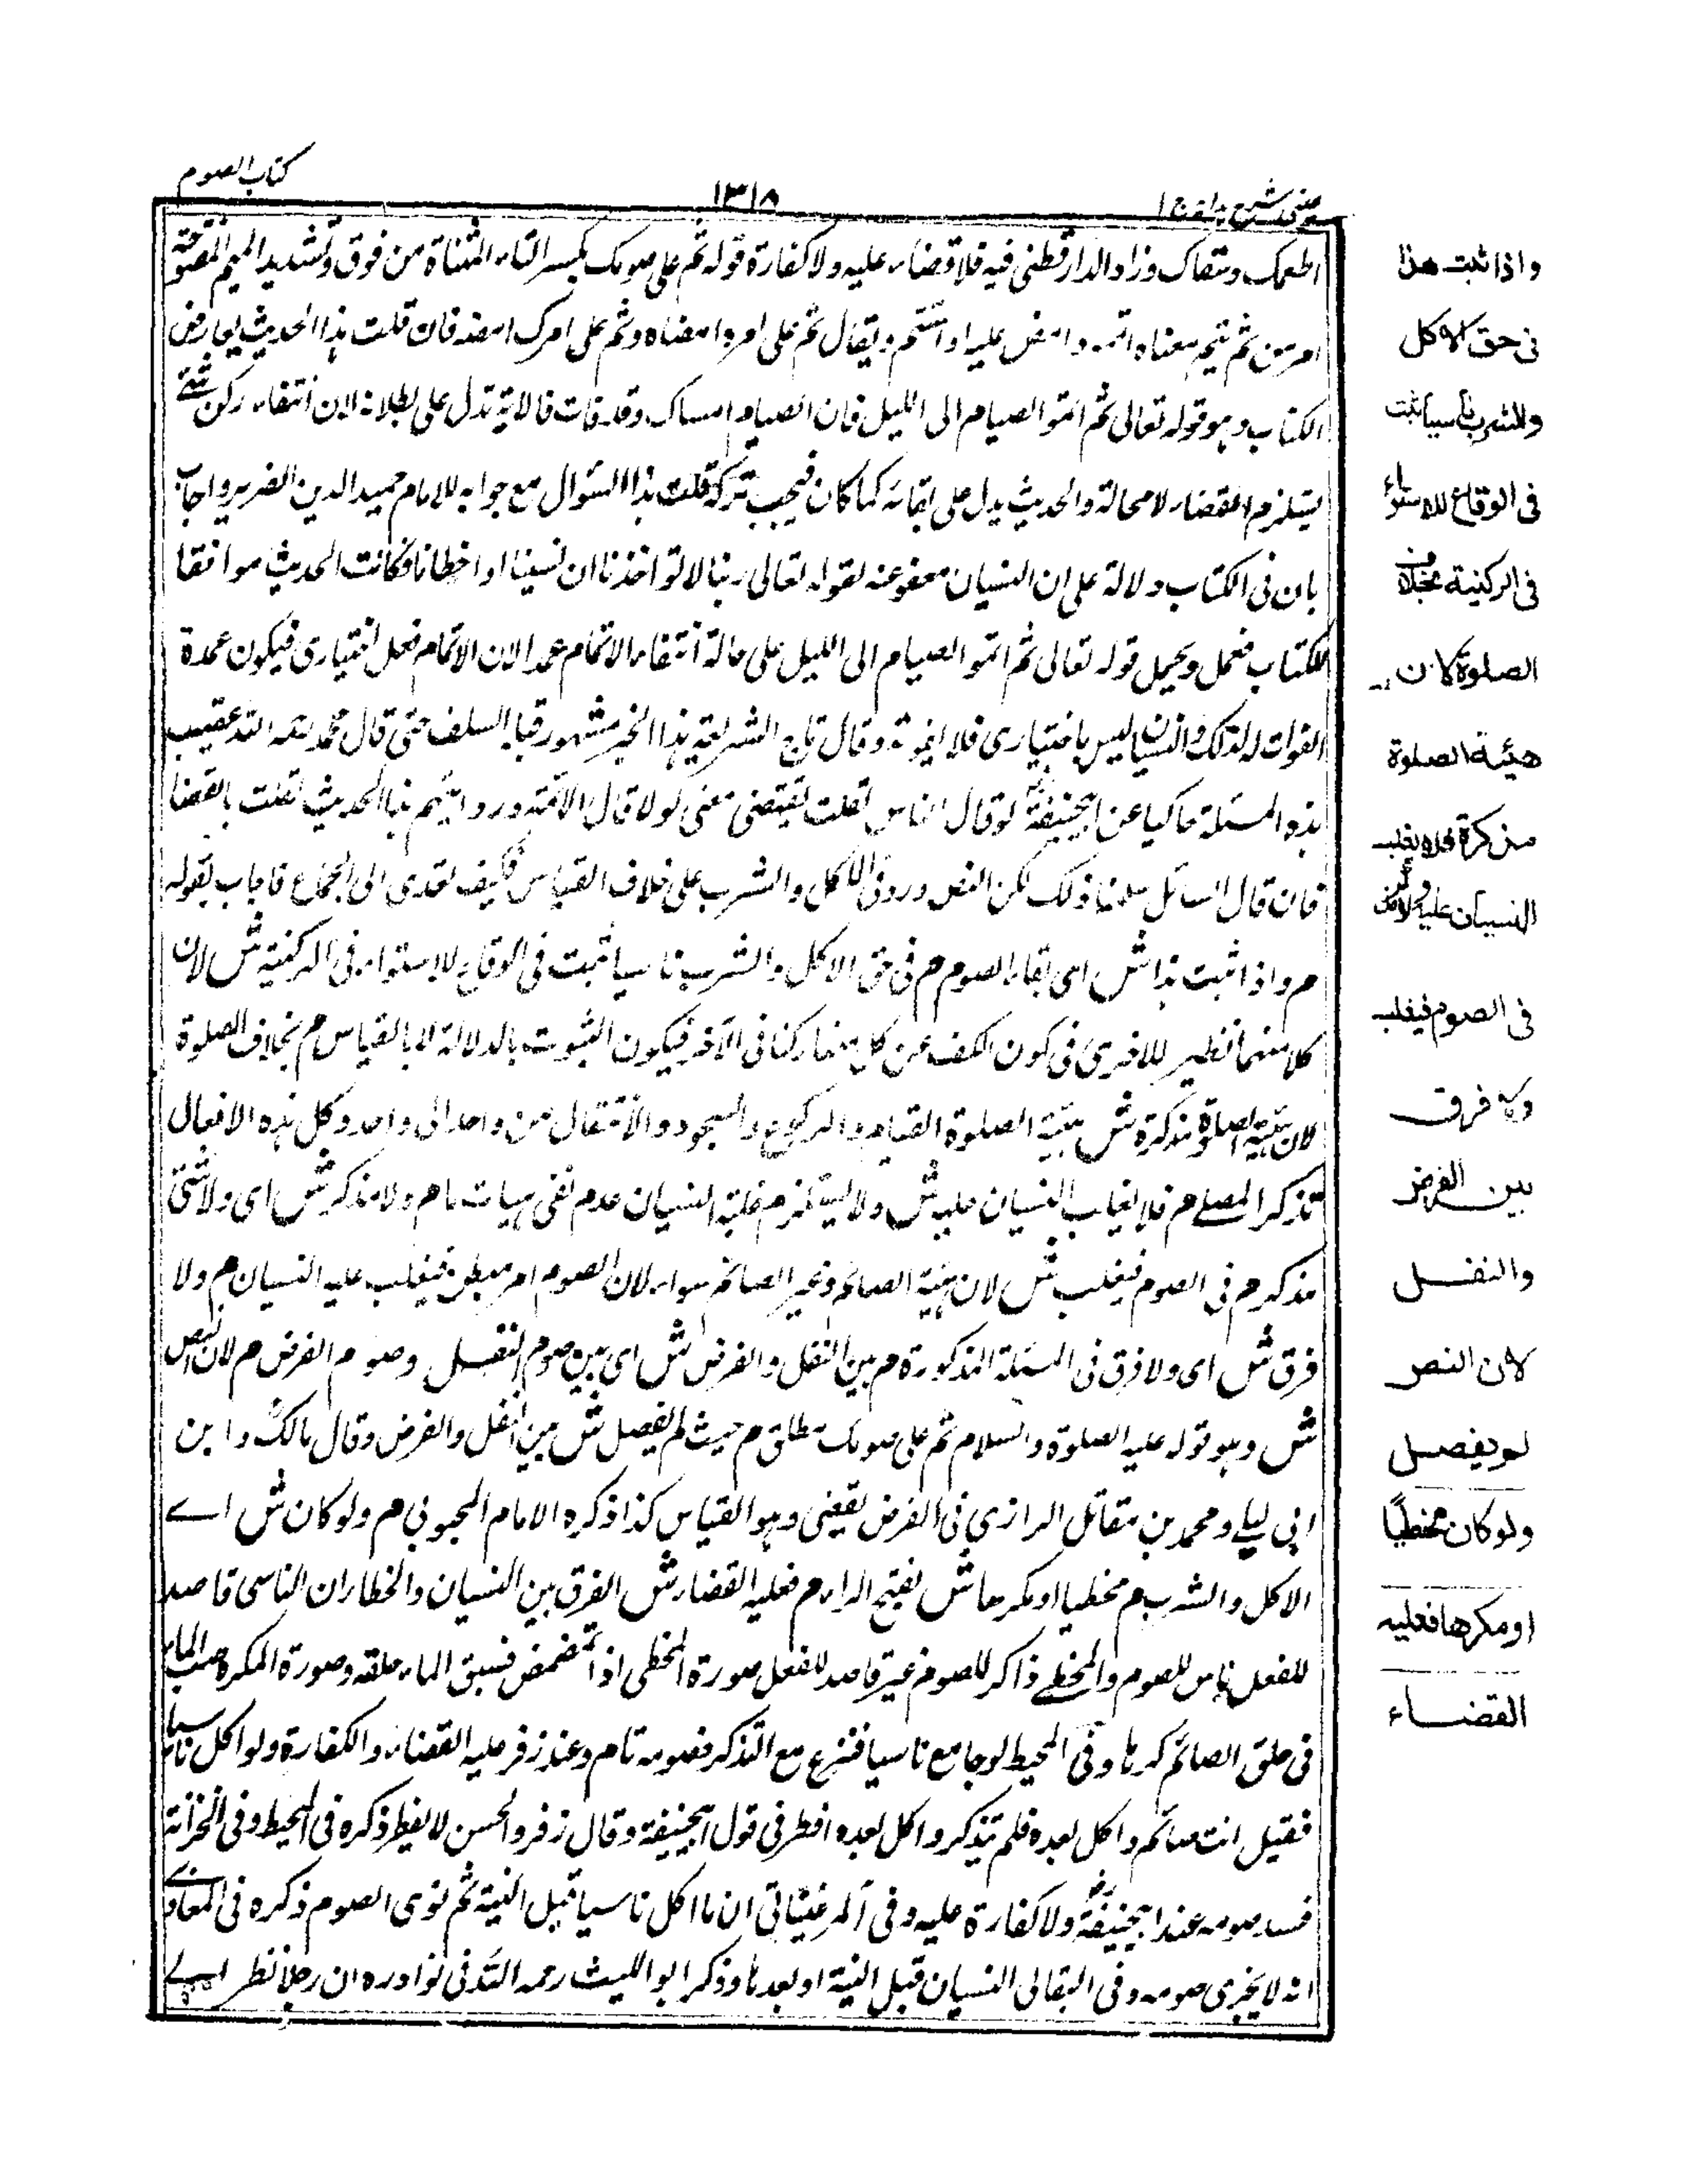 كتاب الصوم
١٣١٨
عينى شرح هدايه ج ١
اطعمك وسقاك وزاد الدارقطنى فيه فلا قضاء عليه ولا كفارة قوله تم على صومك بكسر التاء المثناة من فوق وتشديد الميم المفتوحة
امر من تم يتم معناه اتمه وامض عليه او استتم ويقال تم على امره امضاه وتم على امرك امضه فان قلت هذا الحديث يعارض
الكتاب وهو قوله تعالى ثم اتموا الصيام الى الليل فان الصيام امساك وقد فات فالآية تدل على بطلانه لان انتفاء ركن شئ
يستلزم انقضاءه لا محالة والحديث يدل على بقائه كما كان فيجب تركه قلت هذا السؤال مع جوابه للامام حميد الدين الضرير واجاب
بان فى الكتاب دلالة على ان النسيان معفو عنه لقوله تعالى ربنا لا تؤاخذنا ان نسينا او اخطانا فكانت الحديث موافقا
للكتاب فعمل ويحمل قوله تعالى ثم اتموا الصيام الى الليل على حالة انتفاء الاتمام عمدا لان الاتمام فعل اختيارى فيكون عمدة
الفوات له لذلك والنسيان ليس باختيارى فلا يفوته وقال تاج الشريعة هذا الخبر مشهور قبله السلف حتى قال محمد رحمه الله عقيب
هذه المسئلة حاكيا عن ابيحنيفة لو قال الناس لقلت يقتضى معنى لولا قال الائمة وروايتهم هذا الحديث لقلت بالقضا
فان قال السائل سلمنا ذلك لكن النص ورد فى الاكل والشرب على خلاف القياس فكيف تعدى الى الجماع فاجاب بقوله
م واذا ثبت هذا ش اى بقاء الصوم م فى حق الاكل والشرب ناسيا ثبت فى الوقاع للاستواء فى الركنية ش لان
كلا منهما نظير للاخرى فى كون الكف عن كل منهما ركنا فى الآخر فيكون الثبوت بالدلالة لا بالقياس م بخلاف الصلوة
لان هيئة الصلوة مذكرة ش هيئة الصلوة القيام والركوع والسجود والانتقال من واحد الى واحد وكل هذه الافعال
تذكر المصلے م فلا يغلب النسيان عليه ش ولا يستلزم غلبة النسيان عدم نفى هيبات ما م ولا مذكر ش اى ولا شئ
مذكر م فى الصوم فيغلب ش لان هيئة الصائم وغير الصائم سواء لان الصوم امر مبطن فيغلب عليه النسيان م ولا
فرق ش اى ولا فرق فى المسئلة المذكورة م بين النفل والفرض ش اى بين صوم النفل وصوم الفرض م لان النص
ش وهو قوله عليه الصلوة والسلام تم على صومك مطلق م حيث لم يفصل ش بين النفل والفرض وقال مالك وابن
ابى ليلے ومحمد بن مقاتل الرازى فى الفرض يقضى وهو القياس كذا ذكره الامام المحبوبي م ولو كان ش اے
الاكل والشرب م مخطيا او مكرها ش بفتح الراء م فعليه القضاء ش الفرق بين النسيان والخطا ان الناسى قاصد
للفعل ناس للصوم والمخطے ذاكر للصوم غير قاصد للفعل صورة المخطى اذا تمضمض فسبق الماء حلقه وصورة المكره صب الماء
فى حلق الصائم كرها وفى المحيط لو جامع ناسيا فنزع مع التذكر فصومه تام وعند زفر عليه القضاء والكفارة ولو اكل ناسيا
فقيل انت صائم واكل بعده فلم يتذكر واكل بعده افطر فى قول ابيحنيفة وقال زفر والحسن لا يفطر ذكره فى المحيط وفى الخزانة
فسد صومه عند ابيحنيفة رض ولا كفارة عليه وفى المرغينانى ان ما اكل ناسيا قبل النية ثم نوى الصوم ذكره فى الفتاوے
انه لا يجزى صومه وفى البقالى النسيان قبل النية او بعدها وذكر ابو الليث رحمه الله فى نوادره ان رجلا نظر اے
واذا ثبت هذا
فى حق الاكل
والشرب ناسيا ثبت
فى الوقاع للاستواء
فى الركنية بخلاف
الصلوة لان
هيئة الصلوة
مذكرة فلا يغلب
النسيان عليه ولا مذكر
فى الصوم فيغلب
ولا فرق
بين الفرض
والنفل
لان النص
لم يفصل
ولو كان مخطيًا
او مكرها فعليه
القضاء